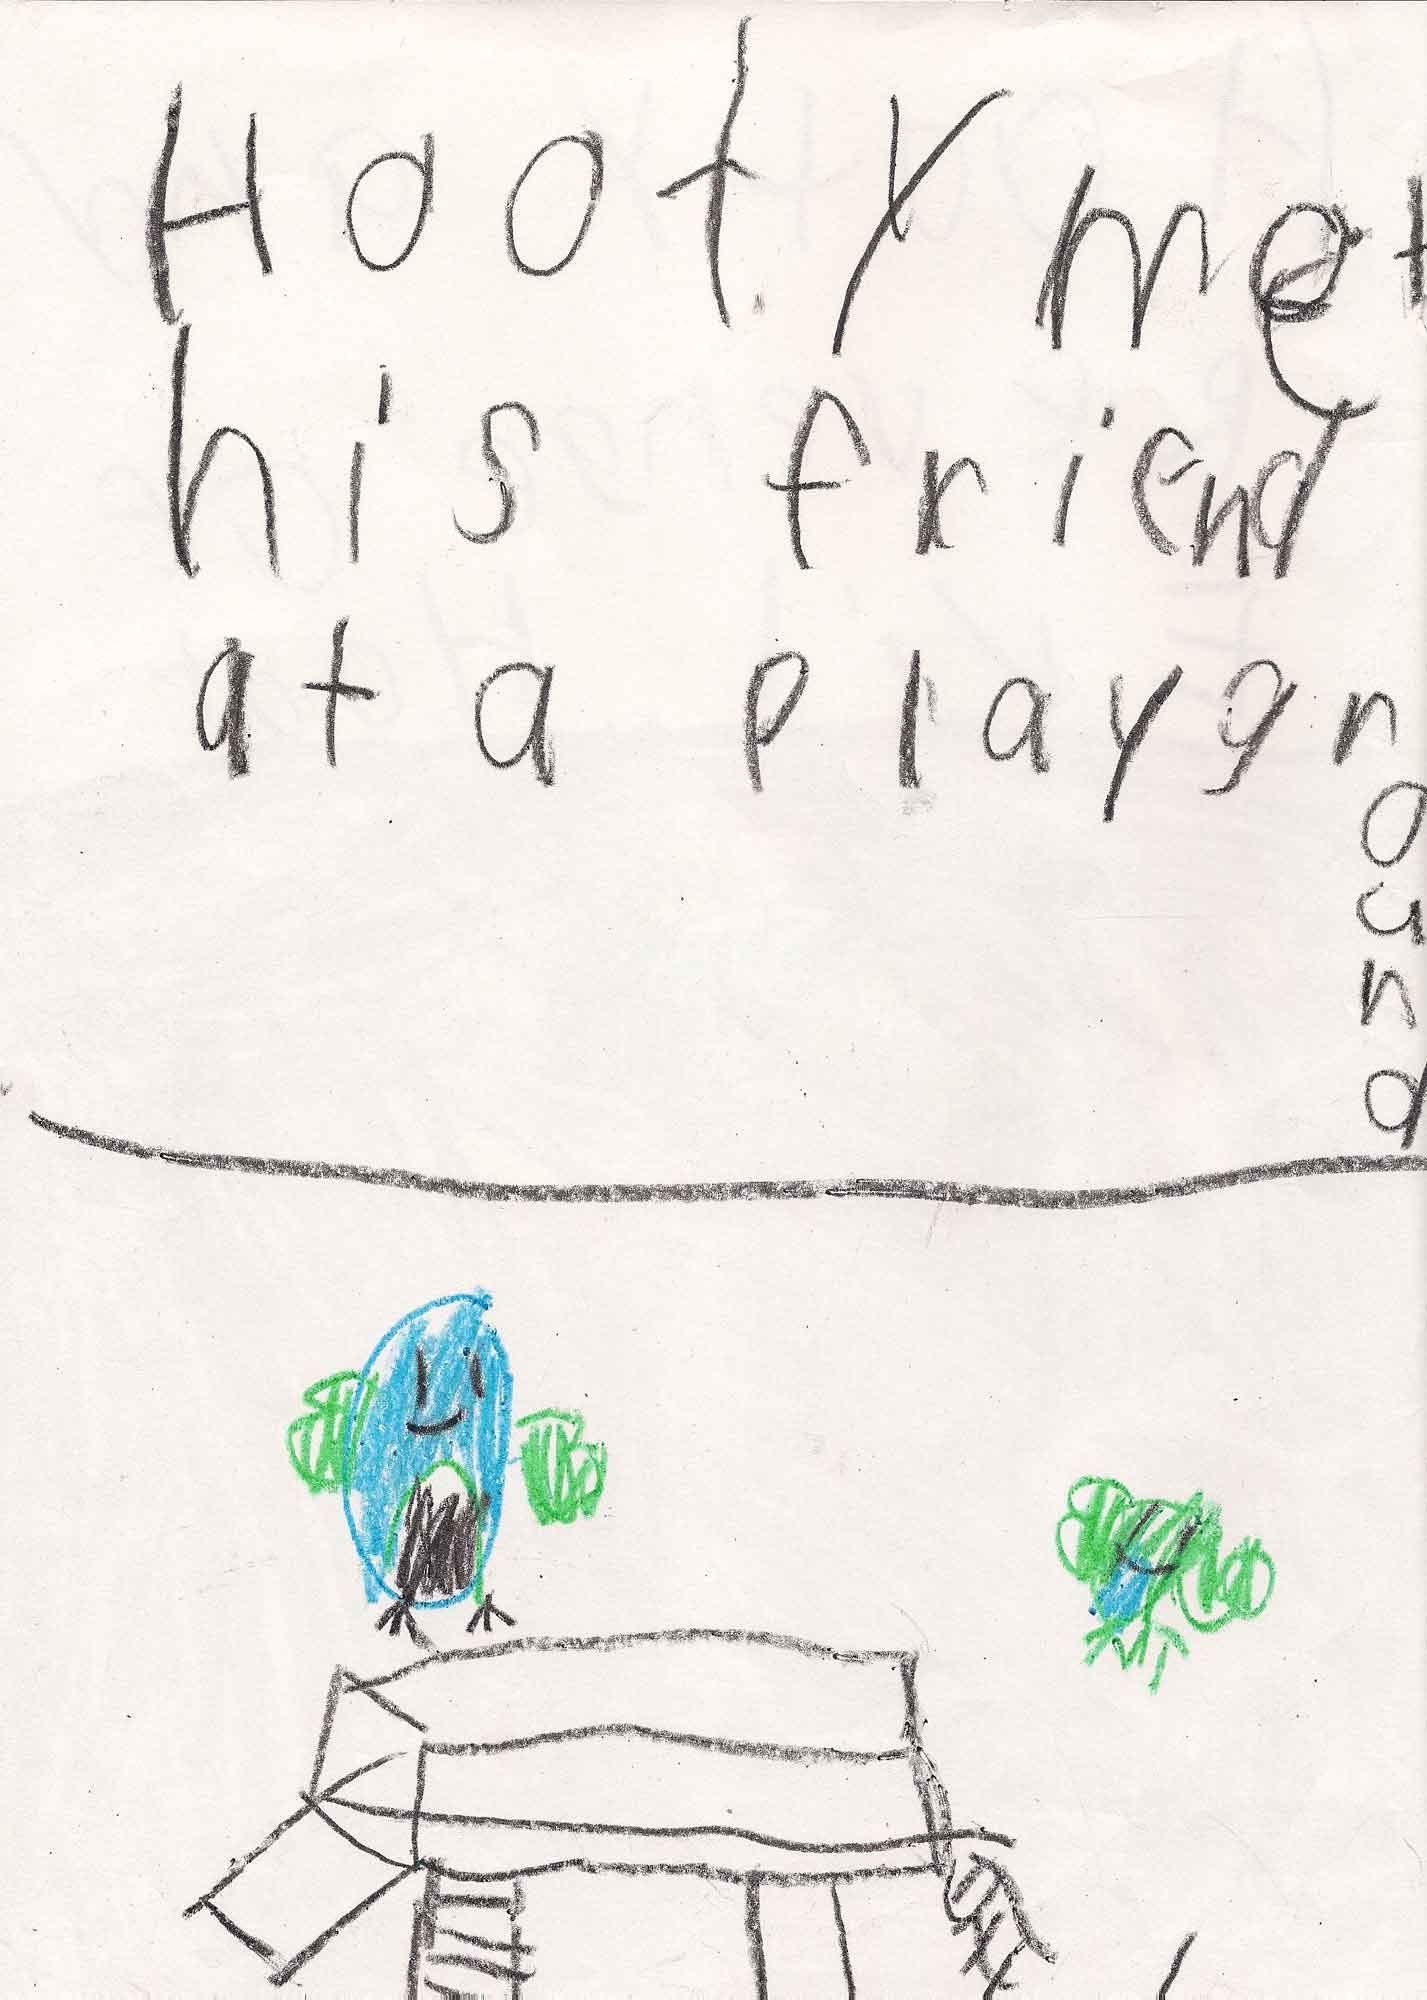 Hooty met
his friend
at a playground